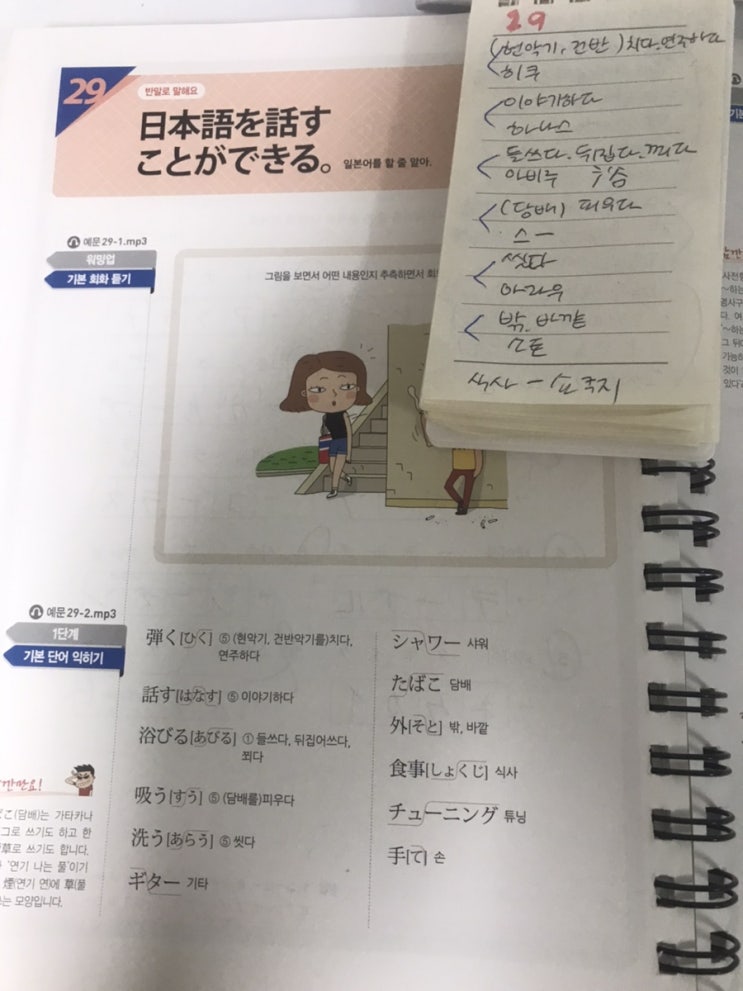 29
(현악기, 건반 )치다.연주하다
히쿠
이야기하다
하나스
들쓰다. 뒤집다.쬐다
아비루
(담배) 피우다
스ー
씻다
아라우
밖, 바깥
소토
식사 ー 쇼쿠지
29
반말로 말해요
日本語を話す
ことができる。 일본어를 할 줄 알아.
예문 29-1.mp3
워밍업
기본 회화 듣기
그림을 보면서 어떤 내용인지 추측하면서 회
예문 29-2.mp3
1단계
기본 단어 익히기
弾く[ひく] ⑤ (현악기, 건반악기를)치다,
연주하다
話す[はなす] ⑤ 이야기하다
浴びる[あびる] ① 들쓰다, 뒤집어쓰다,
쬐다
吸う[すう] ⑤ (담배를)피우다
洗う[あらう] ⑤ 씻다
ギター 기타
シャワー 샤워
たばこ 담배
外[そと] 밖, 바깥
食事[しょくじ] 식사
チューニング 튜닝
手[て] 손
간만요!
ばこ(담배)는 가타카나
그로 쓰기도 하고 한
草로 쓰기도 합니다.
'연기 나는 풀'이기
煙(연기 연)에 草(풀
는 모양입니다.